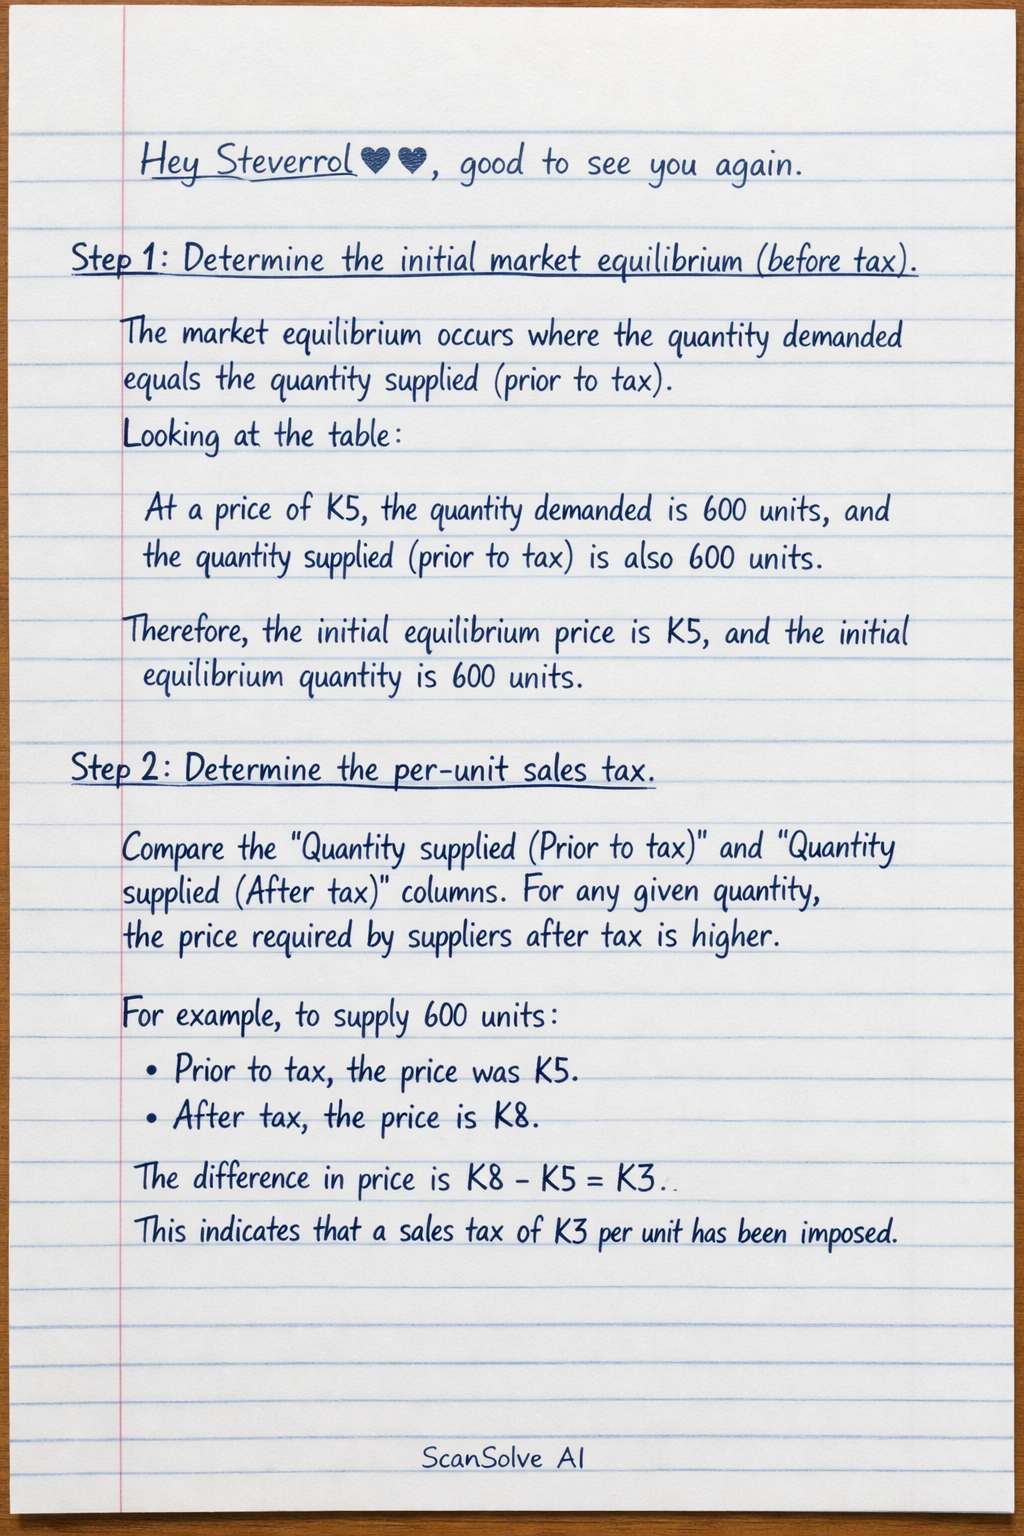 Hey Steverrol♥♥, good to see you again.
Step 1: Determine the initial market equilibrium (before tax).
The market equilibrium occurs where the quantity demanded
equals the quantity supplied (prior to tax).
Looking at the table:
At a price of K5, the quantity demanded is 600 units, and
the quantity supplied (prior to tax) is also 600 units.
Therefore, the initial equilibrium price is K5, and the initial
equilibrium quantity is 600 units.
Step 2: Determine the per-unit sales tax.
Compare the "Quantity supplied (Prior to tax)" and "Quantity
supplied (After tax)" columns. For any given quantity,
the price required by suppliers after tax is higher.
For example, to supply 600 units:
• Prior to tax, the price was K5.
• After tax, the price is K8.
The difference in price is K8 - K5 = K3.
This indicates that a sales tax of K3 per unit has been imposed.
ScanSolve AI